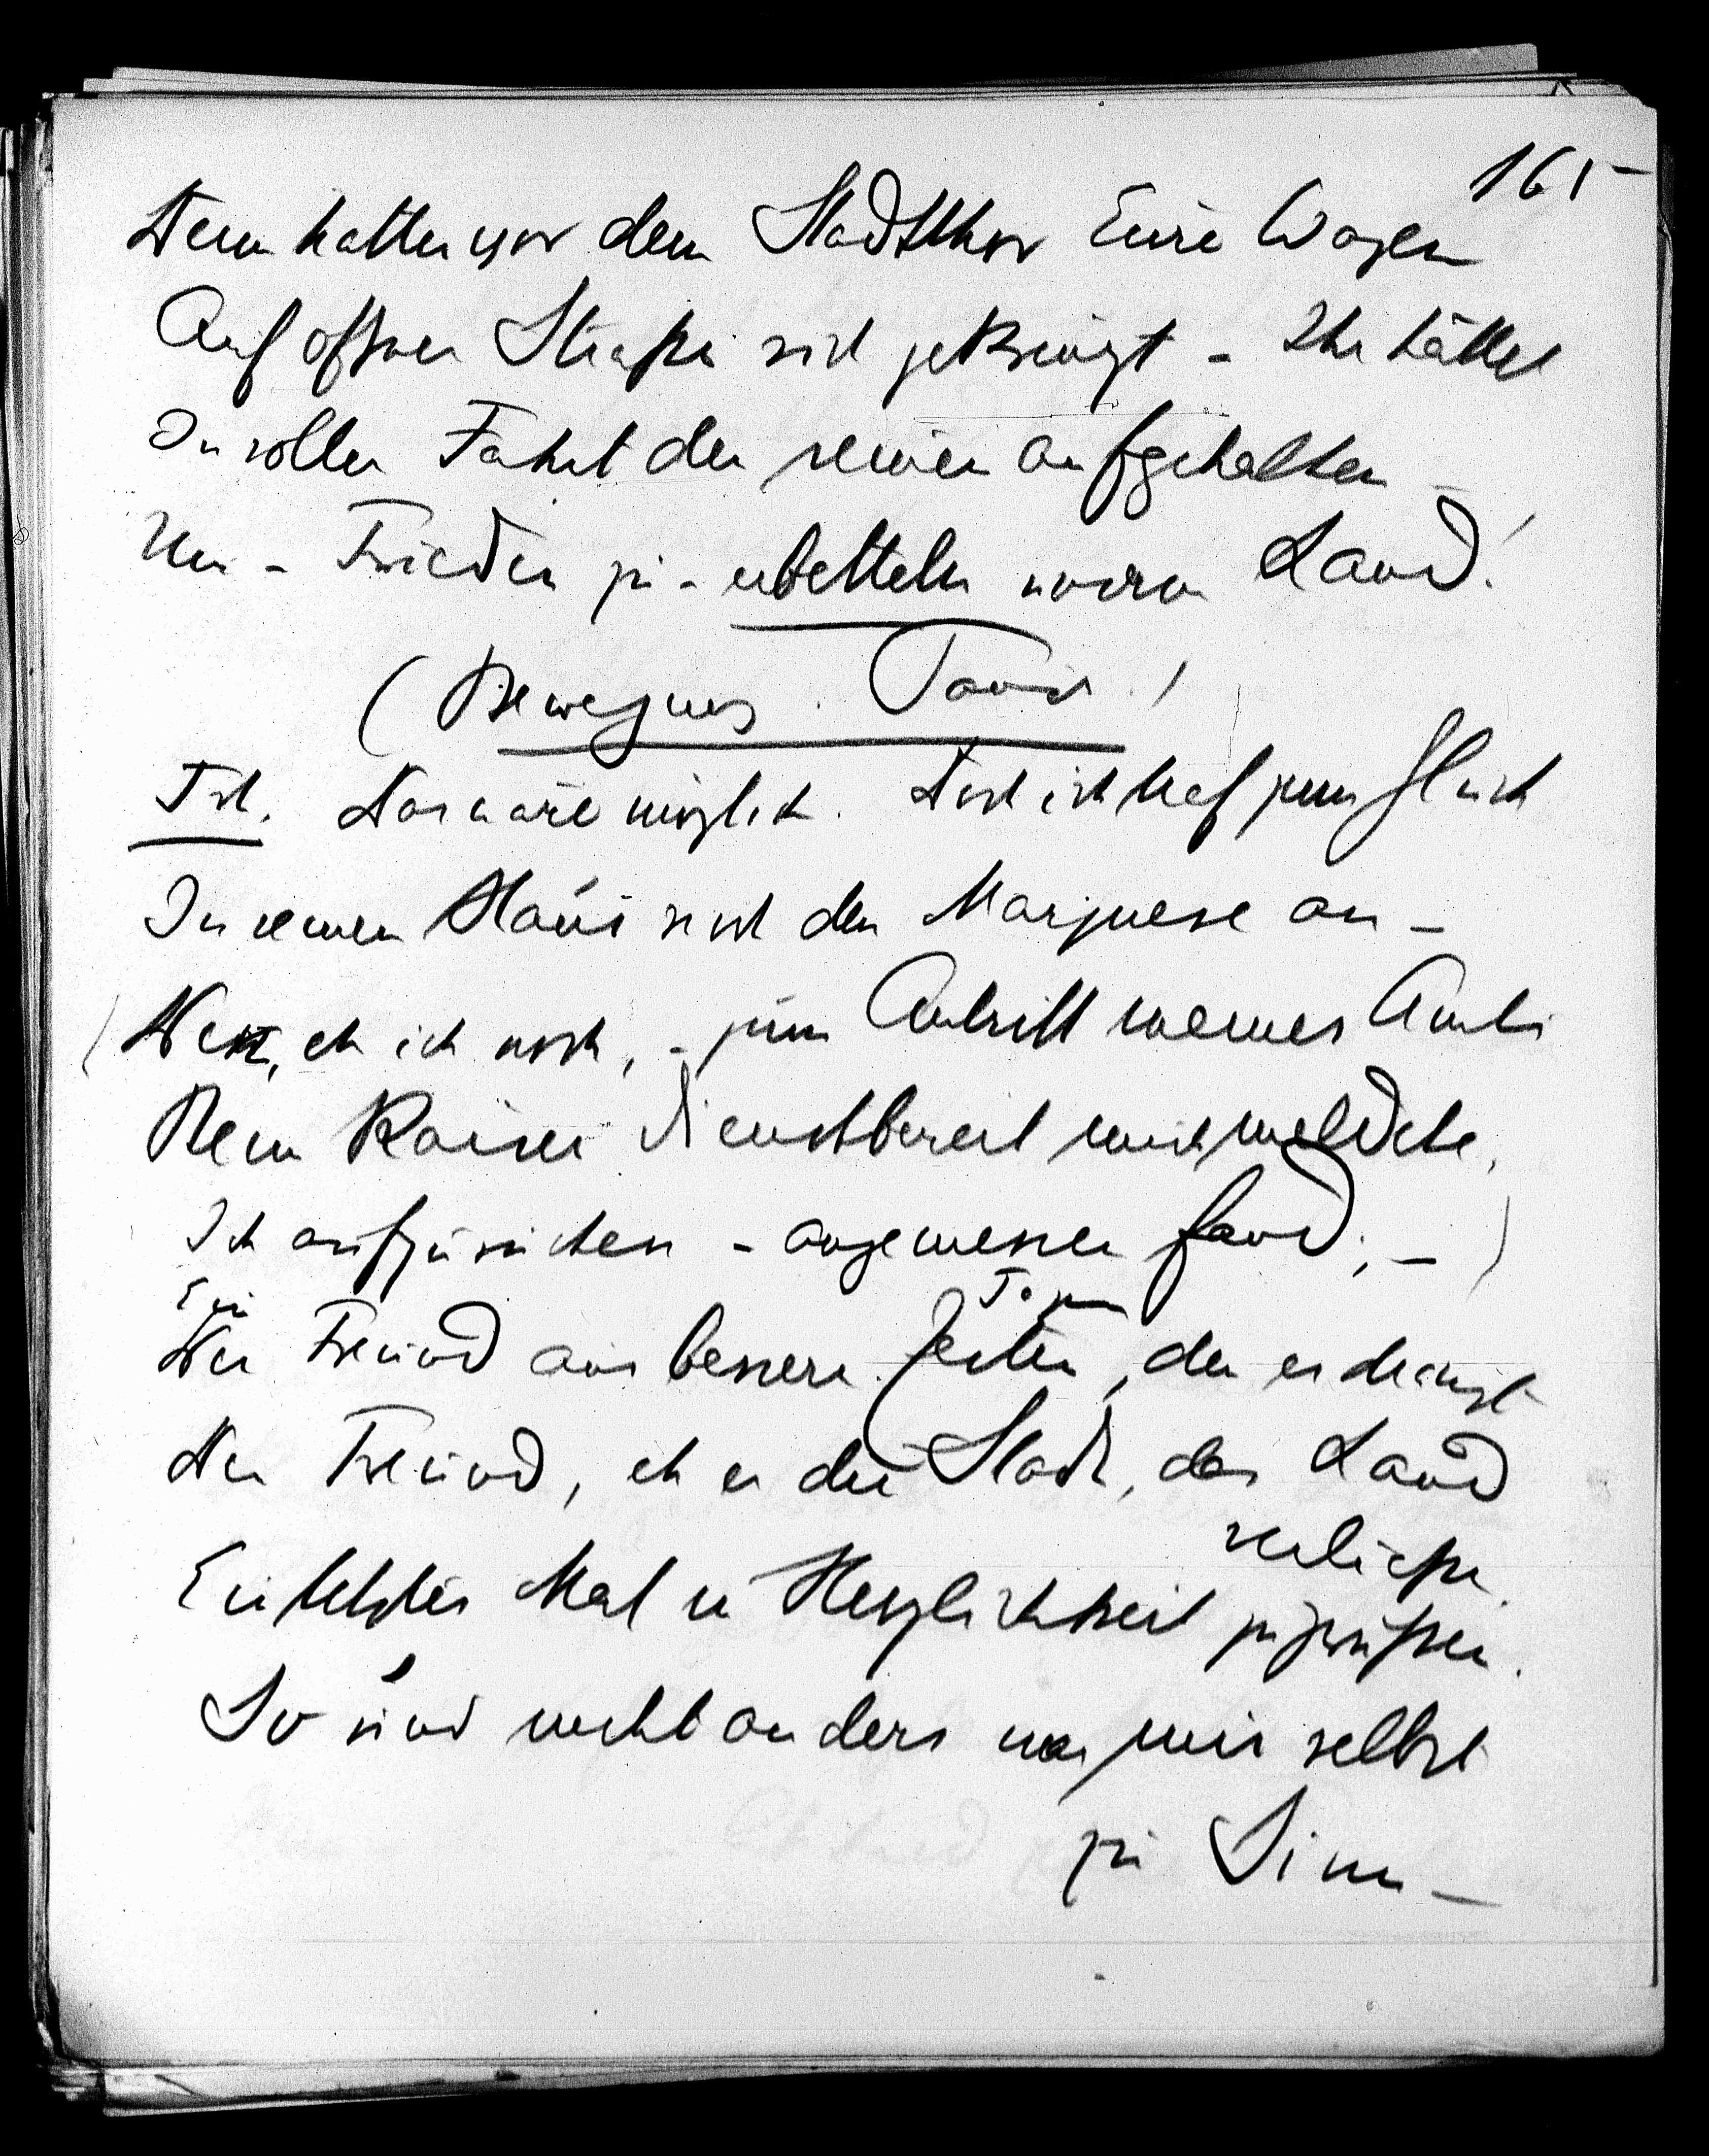 165
Denn hatten vor dem Stadtthor Eure Wagen
Auf offner Straße sich gekreuzt - Ihr hättet
In voller Fahrt den seinen aufgehalten -
Um - Frieden zu - erbetteln unsrem Land!
(Bewegung.
Das wäre möglich. Doch ich traf zum Glück
In seinem Haus noch den Marquese an -
(Den, eh ich noch, - zum Antritt meines Amts
Dem Kaiser dienstbereit mich meldete,
Ich aufzusuchen - angemessen fand; - )
Ein
Der Freund aus bessern Zeiten, der es drängt
Den Freund, eh er die Stadt, das Land
verließe,
Ein letztes Mal in Herzlichkeit zu grüßen.
So und nicht anders war mir selbst
zu Sinn -